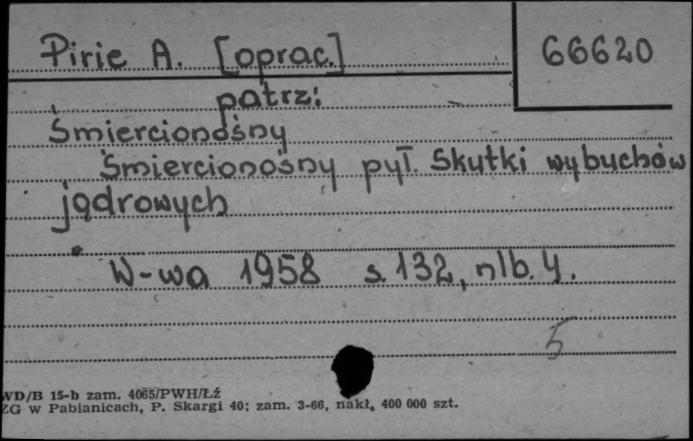 Pirie A. [oprac.]
66620
patrz:
Śmiercionośny
Śmiercionośny pył. Skutki wybuchów
jądrowych
W-wa 1958 s. 132, nlb. 4.
5
WD/B 15-b zam. 4065/PWH/Łź
ZG w Pabianicach, P. Skargi 40; zam. 3-66, nakł. 400 000 szt.